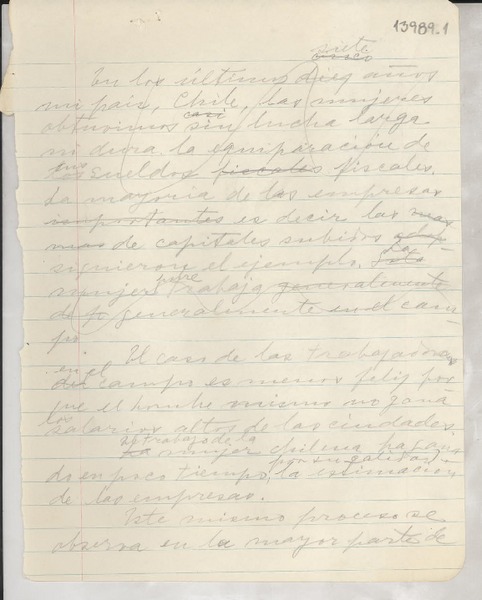 13989.1
siete
cinco
En los últimos diez años
mi país, Chile, las mujeres
casi
obtuvimos sin lucha larga
ni dura la equiparación de
sueldos fiscales fiscales.
La mayoría de las empresas
importantes es decir las
de capitales subidos
siguieron el ejemplo. La
mujer trabaja generalmente
generalmente en el cam-
po
El caso de las trabajadoras
en el
campo es menos feliz por
que el hombre mismo no gana
los
salarios altos de las ciudades.
El trabajo de la
La mujer chilena
do en poco tiempo, por su calidad, la estimación
de las empresas.
Este mismo proceso se
observa en la mayor parte de